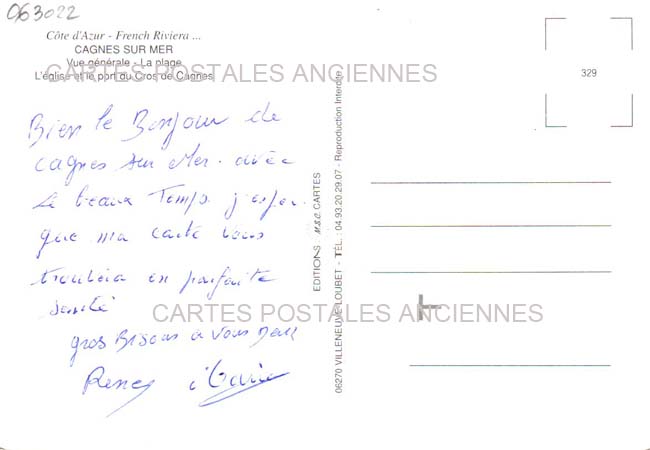 063022
Côte d'Azur - French Riviera ...
CAGNES SUR MER
Vue générale - La plage
L'église et le port du Cros de Cagnes
CARTES POSTALES ANCIENNES
329
Bien le Bonjour de
cagnes sur Mer. avec
le beaux Temps j'esper
que ma carte vous
trouvera en parfaite
santé
gros Bisous a vous Deux
Marie
EDITIONS M.S.C. CARTES
06270 VILLENEUVE-LOUBET - TÉL. : 04 93 20 29 07 - Reproduction Interdite
CARTES POSTALES ANCIENNES